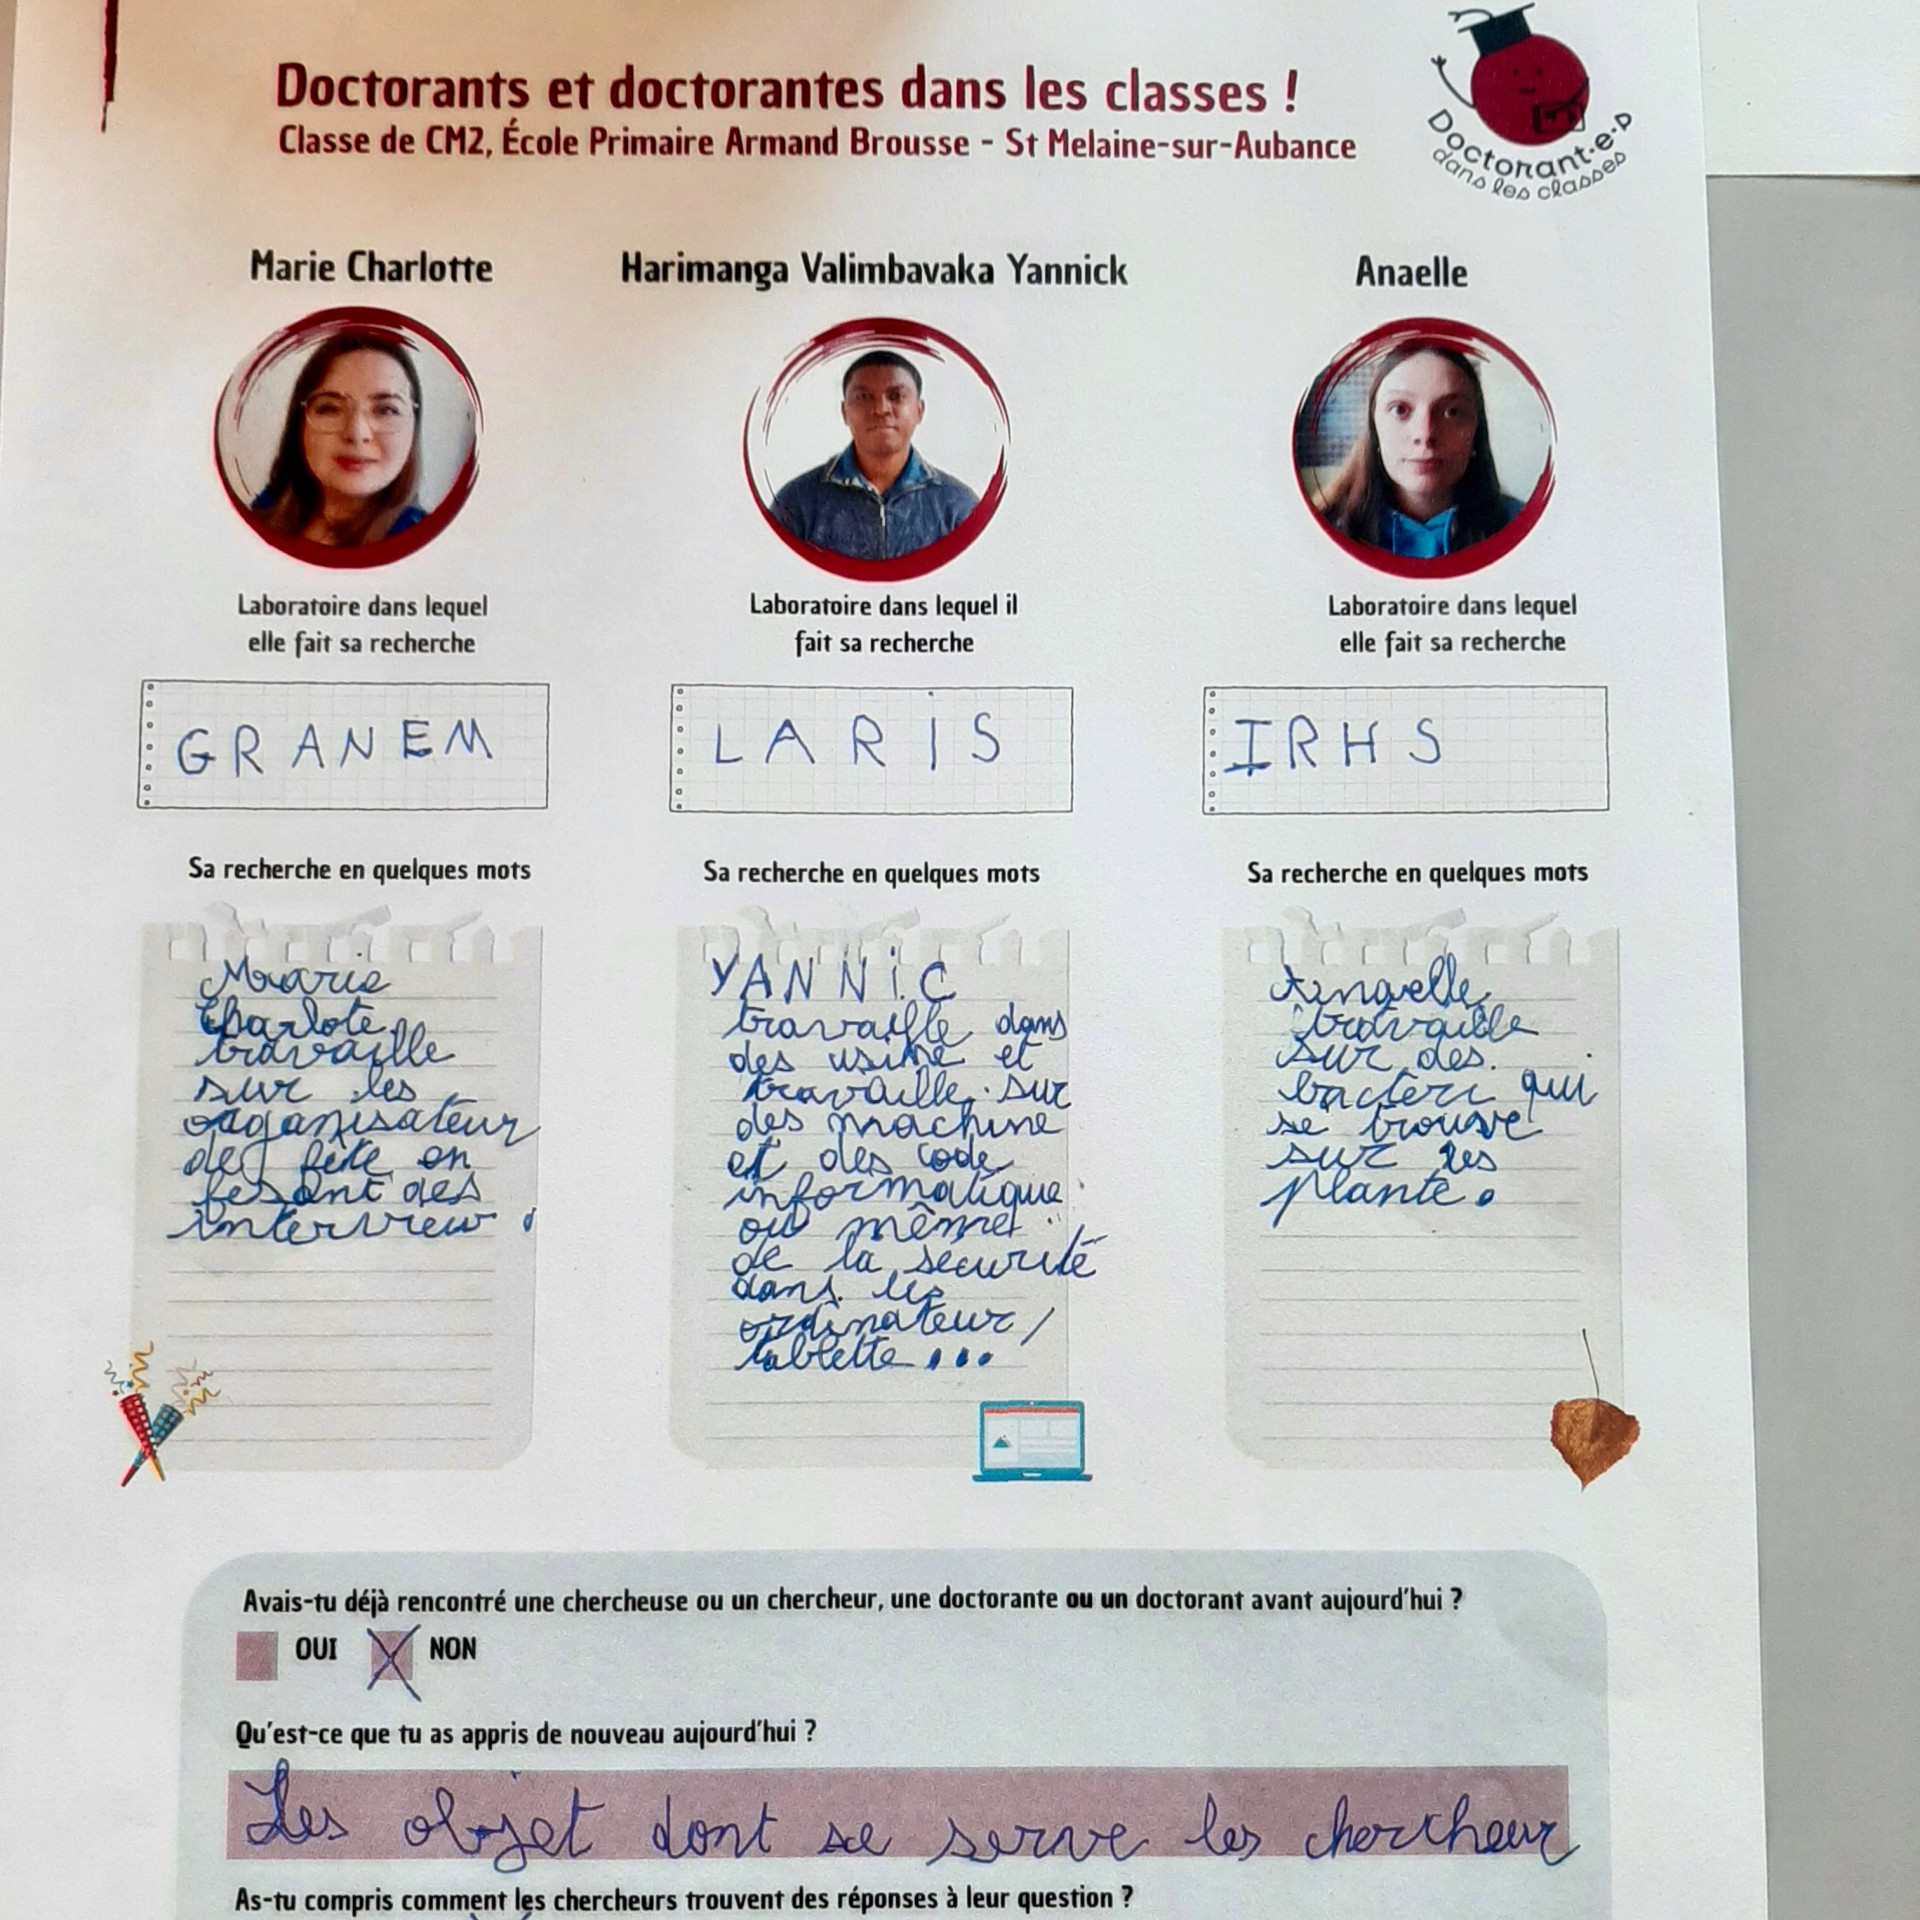 Doctorants et doctorantes dans les classes !
Classe de CM2, École Primaire Armand Brousse - St Melaine-sur-Aubance
Doctorant·e·s
dans les classes
Marie Charlotte
Harimanga Valimbavaka Yannick
Anaelle
Laboratoire dans lequel
elle fait sa recherche
Laboratoire dans lequel il
fait sa recherche
Laboratoire dans lequel
elle fait sa recherche
GRANEM
LARIS
IRHS
Sa recherche en quelques mots
Sa recherche en quelques mots
Sa recherche en quelques mots
Marie
Charlote
travaille
sur les
organisateur
de fête en
fesant des
interview.
YANNiC
travaille dans
des usine et
travaille sur
des machine
et des code
informatique
ou même
de la securité
dans les
ordinateur/
tablette...
Anaelle
travaille
sur des
bacteri qui
se trouve
sur les
plante.
Avais-tu déjà rencontré une chercheuse ou un chercheur, une doctorante ou un doctorant avant aujourd'hui ?
OUI NON
Qu'est-ce que tu as appris de nouveau aujourd'hui ?
Les objet dont se serve les chercheur
As-tu compris comment les chercheurs trouvent des réponses à leur question ?